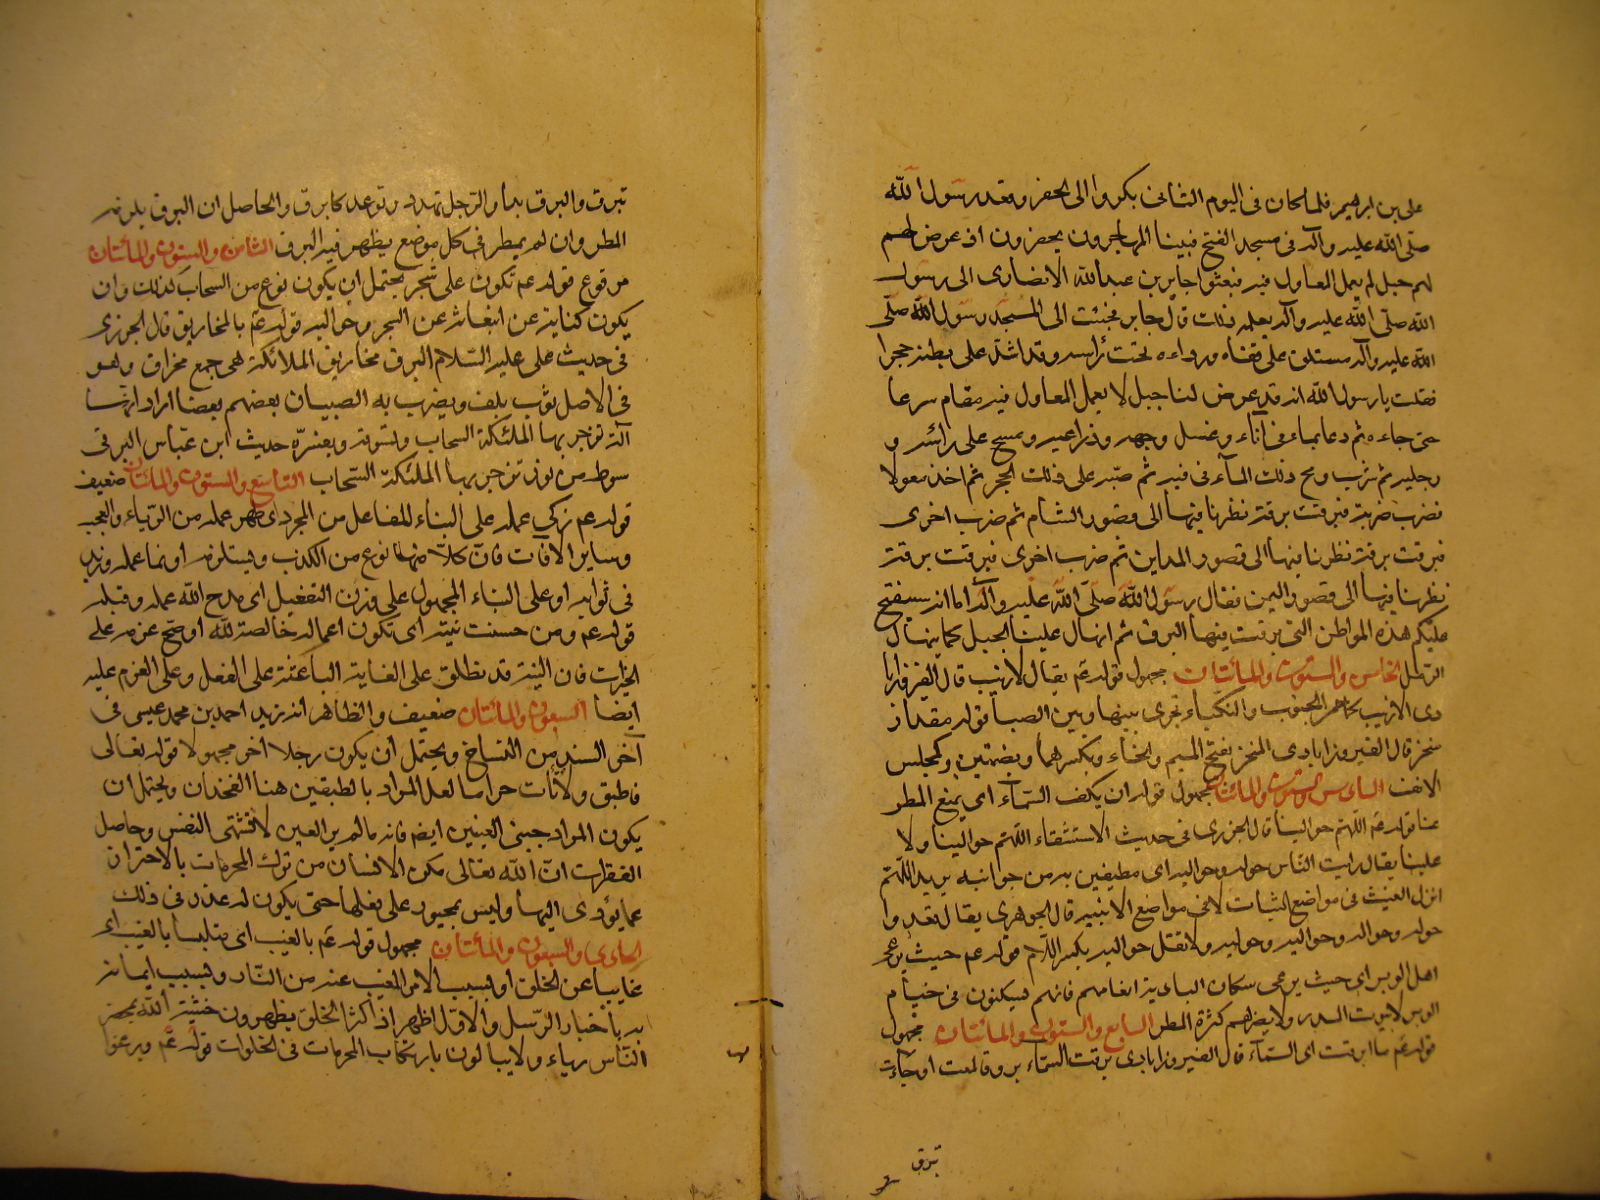 على بن ابرهيم فلما كان فى اليوم الثانى بكروا الى الحفر وقعد رسول الله
صلى الله عليه وآله فى مسجد الفتح فبينا المهاجرون يحفرون اذ عرض لهم
لهم جبل لم يعمل المعاول فيه فبعثوا جابر بن عبد الله الانصارى الى رسول
الله صلى الله عليه وآله يعلمه ذلك قال جابر فجئت الى المسجد ورسول الله صلى
الله عليه وآله مستلق على قفاه ورداءه تحت رأسه وقد شد على بطنه حجرا
فقلت يا رسول الله انه قد عرض لنا جبل لا يعمل المعاول فيه فقام مسرعا
حتى جاءه ثم دعا بماء فى اناء وغسل وجهه وذراعيه ومسح على رأسه و
رجليه ثم شرب ومج ذلك الماء فى فيه ثم صبه على ذلك الحجر ثم اخذ معولا
فضرب ضربة فبرقت برقة نظرنا فيها الى قصور الشام ثم ضرب اخرى
فبرقت برقة نظرنا فيها الى قصور المداين ثم ضرب اخرى فبرقت برقة
نظرنا فيها الى قصور اليمن فقال رسول الله صلى الله عليه وآله اما انه سيفتح
عليكم هذه المواطن التى برقت فيها البرق ثم انهال علينا الجبل كما ينهال
الرمل الخامس والستون والمائتان مجهول قوله عم يقال لا زيب قال الفيروزابا
دى الازيب كاحمر الجنوب والنكباء تجرى بينها وبين الصبا قوله مقدار
منخر قال الفيروزابادى المنخر بفتح الميم والخاء وبكسرهما وبضمتين وكمجلس
الانف السادس والستون والمائتان مجهول قوله ان يكف السماء اى يمنع المطر
عنا قوله عم اللهم حوالينا قال الجزرى فى حديث الاستسقاء اللهم حوالينا ولا
علينا يقال رايت الناس حوله وحواليه اى مطيفين به من جوانبه يريد اللهم
انزل الغيث فى مواضع النبات لا فى مواضع الابنيه قال الجوهرى يقال تعدوا
حوله وحواله وحواليه وحوليه ولا تقل حواليه بكسر اللام قوله عم حيث يرعى
اهل الوبر اى حيث يرعى سكان البادية انعامهم فانهم يسكنون فى خيام
الوبر لا بيوت المدر ولا يضرهم كثرة المطر السابع والستون والمائتان مجهول
قوله عم ما ابرقت اى السماء قال الفيروزابادى برقت السماء بروقا لمعت او جاءت
تبرق
تبرق والبرق بدا والرجل تهدد وتوعد كابرق والحاصل ان البرق يلزمه
المطر وان لم يمطر فى كل موضع يظهر فيه البرق الثامن والستون والمائتان
مرفوع قوله عم تكون على شجر يحتمل ان يكون نوع من السحاب كذلك وان
يكون كناية عن انبعاثه عن البحر وحواليه قوله عم بالمخاريق قال الجزرى
فى حديث على عليه السلام البرق مخاريق الملائكة هى جمع مخراق وهو
فى الاصل ثوب يلف ويضرب به الصبيان بعضهم بعضا اراد انها
آلة تزجر بها الملئكة السحاب وتسوقه ويفسره حديث ابن عباس البرق
سوط من نور تزجر بها الملئكة السحاب التاسع والستون والمائتان ضعيف
قوله عم زكى عمله على البناء للفاعل من المجرد اى طهر عمله من الرياء والعجب
وساير الآفات فان كلا منها نوع من الكذب ويستلزمه او نما عمله وزيد
فى ثوابه او على البناء المجهول على وزن التفعيل اى مدح الله عمله وقبله
قوله عم ومن حسنت نيته اى تكون اعماله خالصة لله او صح عزمه على
الخيرات فان النية قد تطلق على الغاية الباعثة على الفعل وعلى العزم عليه
ايضا السبعون والمائتان ضعيف والظاهر انه زيد احمد بن محمد عيسى فى
آخر السند من النساخ ويحتمل ان يكون رجلا آخر مجهولا قوله تعالى
فاطبق ولا تأت حراما لعل المراد بالطبقين هنا الفخذان ويحتمل ان
يكون المراد جبنى العينين ايضا فانه ما لم ير العين لا تشتهى النفس وحاصل
الفقرات ان الله تعالى مكن الانسان من ترك المحرمات بالاحتراز
عما يؤدى اليها وليس بمجبور على فعلها حتى يكون له عذر فى ذلك
الحادى والسبعون والمائتان مجهول قوله عم بالغيب اى متلبسا بالغيب اى
غايبا عن الخلق او بسبب الامر المغيب عنه من النار وبسبب ايمانه
به باخبار الرسل والاول اظهر اذ اكثر الخلق يظهرون خشية الله بمحضر
الناس رياء ولا يبالون بارتكاب المحرمات فى الخلوات قوله عم ويرغبوا